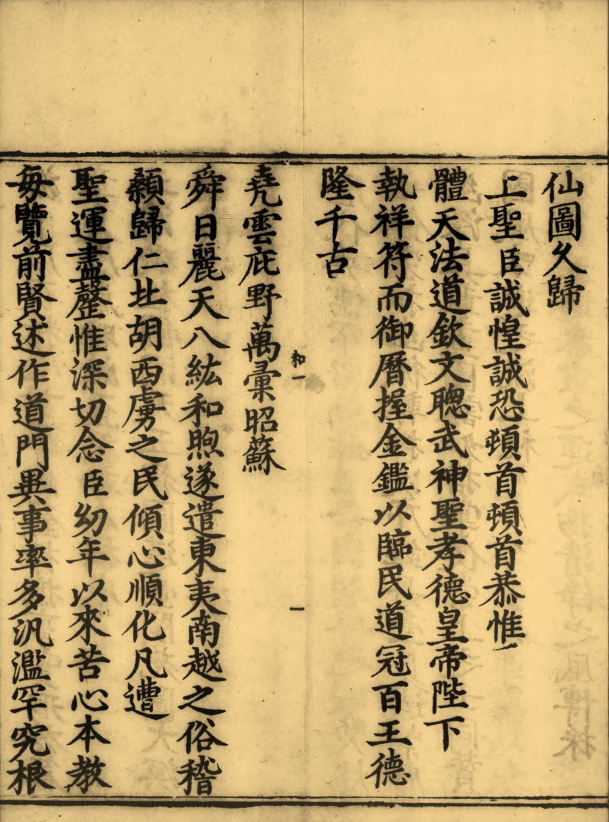 仙圖久歸
上聖臣誠惶誠恐頓首頓首恭惟
體天法道欽文聰武神聖孝德皇帝陛下
執祥符而御曆握金鑑以臨民道冠百王德
隆千古
和一
一
堯雲庇野萬彙昭蘇
舜日麗天八紘和煦遂遣東夷南越之俗稽
顙歸仁北胡西虜之民傾心順化凡遭
聖運盡荷惟深切念臣幼年以來苦心本教
每覽前賢述作道門異事率多汎濫罕究根